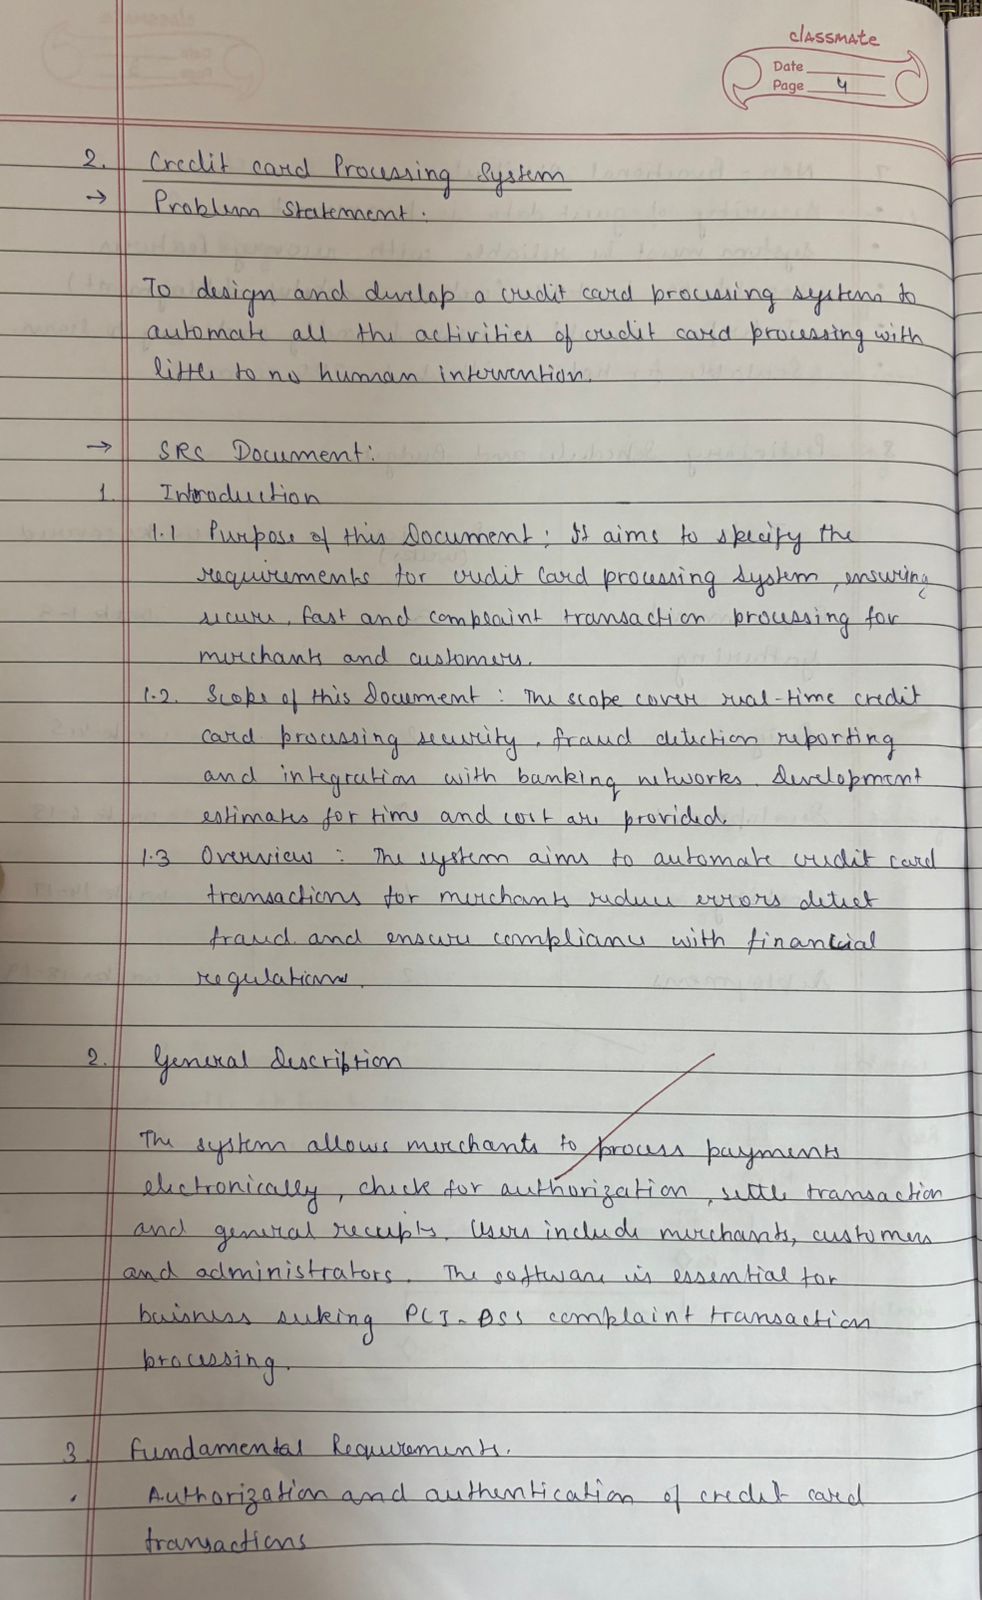 classmate
Date
Page 4
2. Credit card Processing System
→ Problem Statement:
To design and develop a credit card processing system to
automate all the activities of credit card processing with
little to no human intervention.
→ SRS Document:
1. Introduction
1.1 Purpose of this Document: It aims to specify the
requirements for credit card processing system, ensuring
secure, fast and complaint transaction processing for
merchants and customers.
1.2. Scope of this Document: The scope cover real-time credit
card processing security, fraud detection reporting
and integration with banking networks. Development
estimates for time and cost are provided.
1.3 Overview: The system aims to automate credit card
transactions for merchants reduce errors detect
fraud and ensure compliance with financial
regulations.
2. General Description
The system allows merchants to process payments
electronically, check for authorization, settle transaction
and general receipts. Users include merchants, customers
and administrators. The software is essential for
buisness seeking PCI-DSS complaint transaction
processing.
3. Fundamental Requirements.
• Authorization and authentication of credit card
transactions